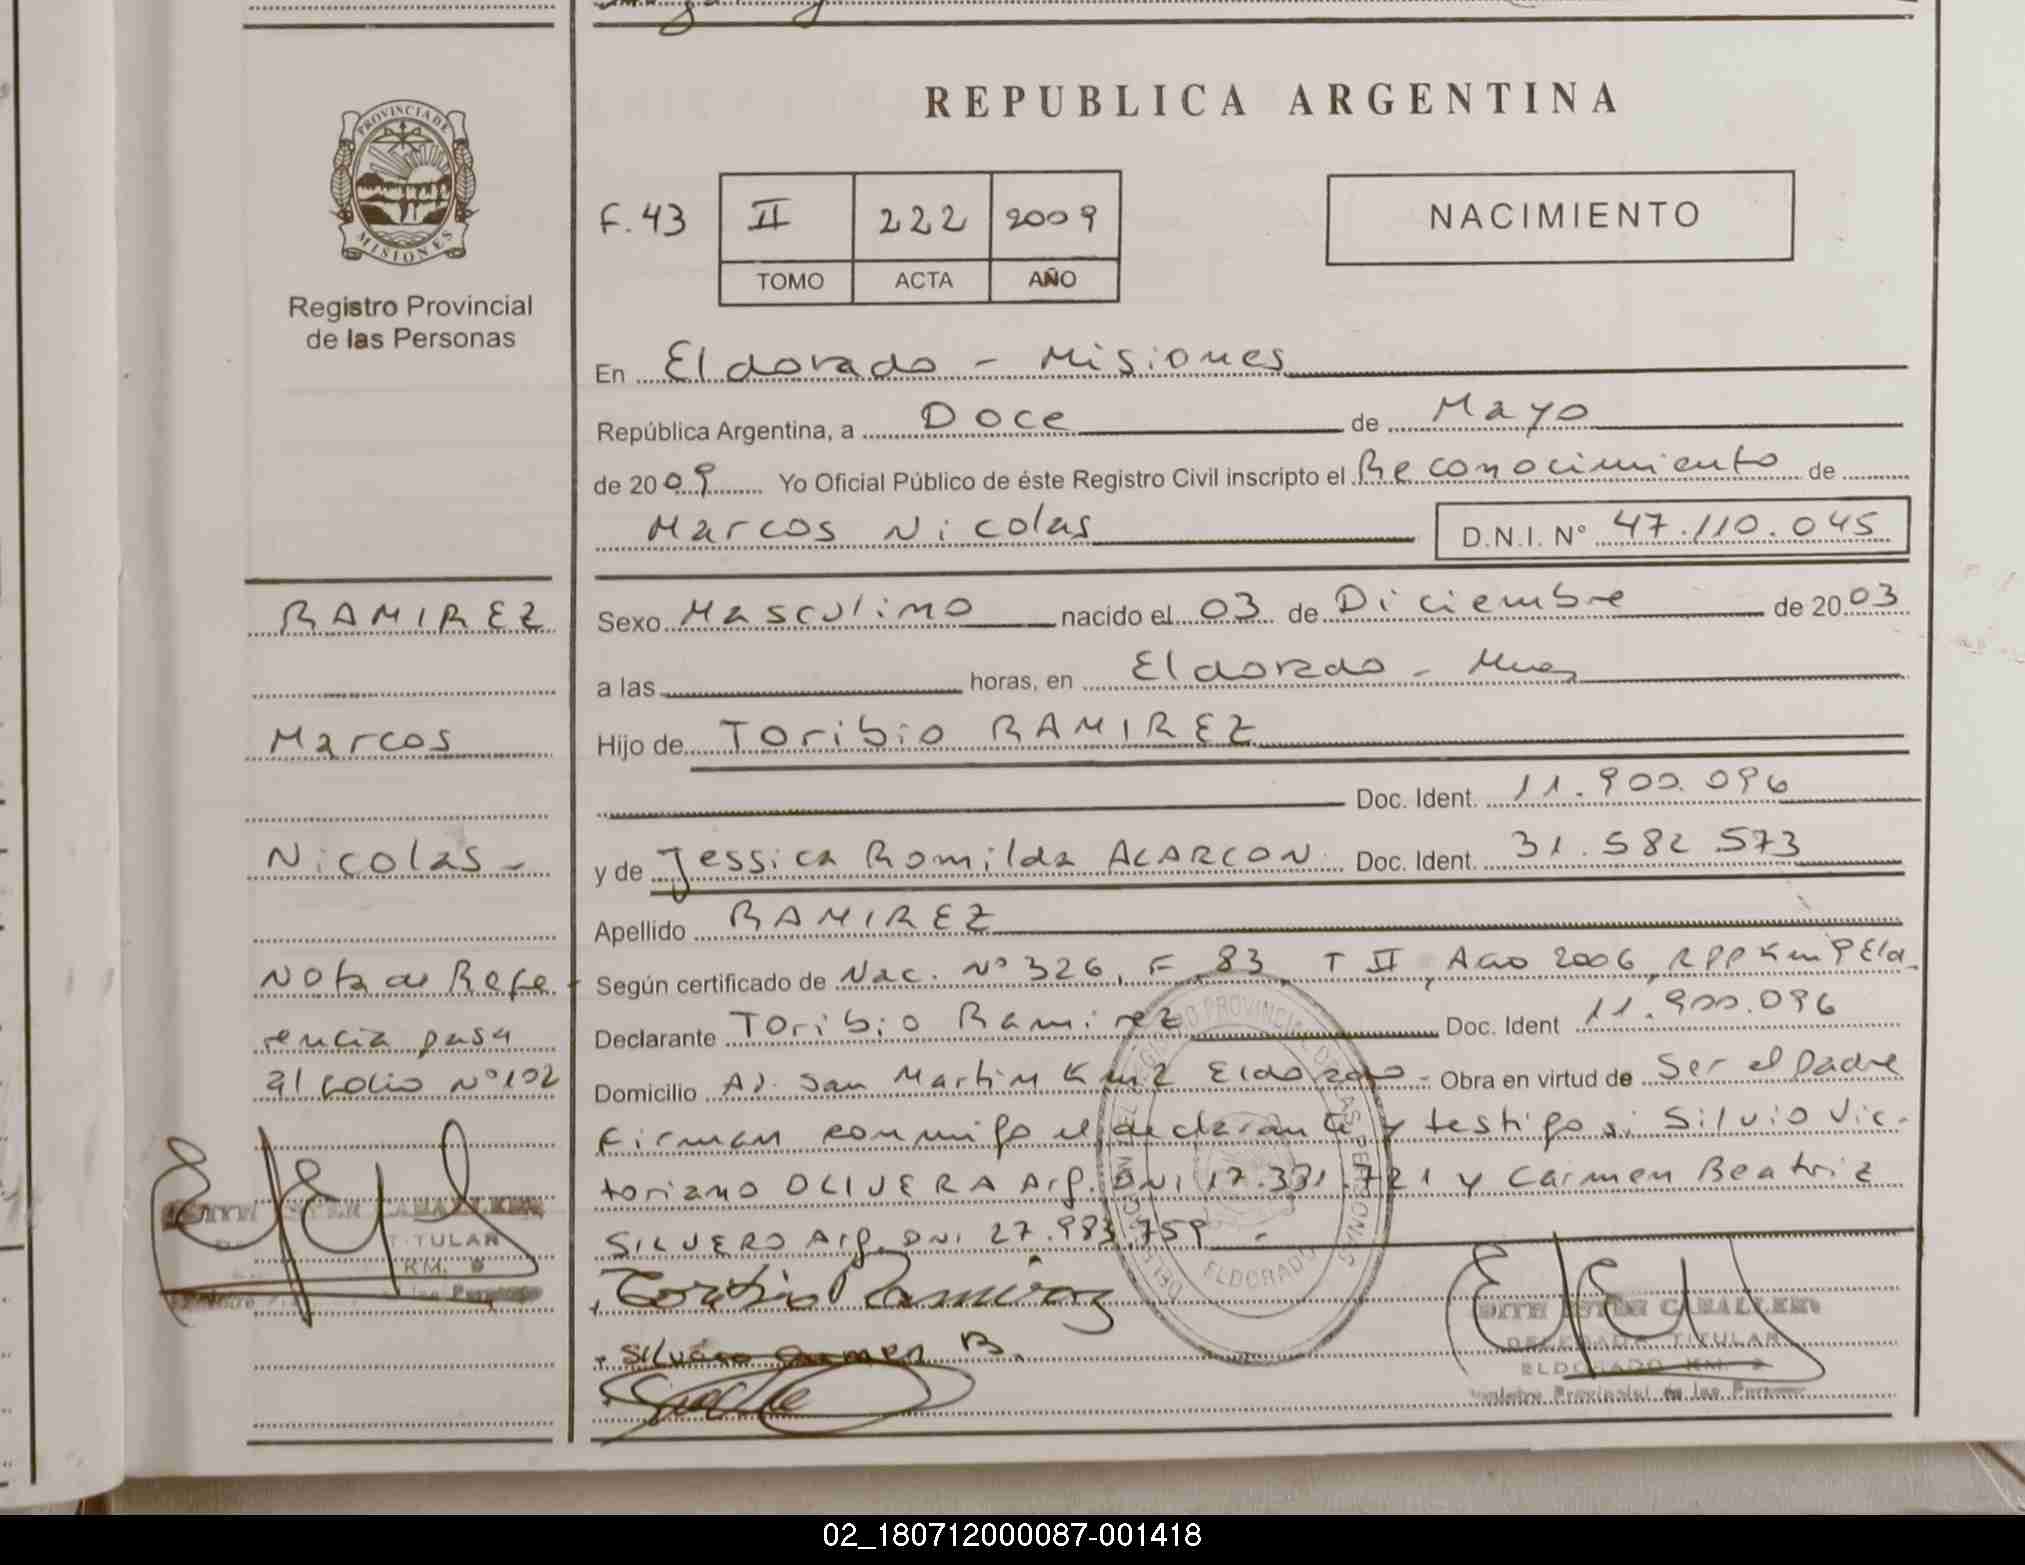 REPUBLICA ARGENTINA
PROVINCIA DE
MISIONES
Registro Provincial
de las Personas
F. 43
II 222 2009
TOMO ACTA AÑO
NACIMIENTO
En Eldorado - Misiones
República Argentina, a Doce de Mayo
de 2009 Yo Oficial Público de éste Registro Civil inscripto el Reconocimiento de
Marcos Nicolas D.N.I. N° 47.110.045
RAMIREZ
Marcos
Nicolas -
Nota de Refe
rencia pasa
al folio N° 102
Sexo Masculino nacido el 03 de Diciembre de 2003
a las horas, en Eldorado - Mnes
Hijo de Toribio RAMIREZ
Doc. Ident. 11.900.096
y de Jessica Romilda ALARCON Doc. Ident. 31.582.573
Apellido RAMIREZ
Según certificado de Nac. N° 326, F 83, T II, Año 2006, RPP Km 9 Eld.
Declarante Toribio Ramirez Doc. Ident 11.900.096
Domicilio Av. San Martin Km 2 Eldorado - Obra en virtud de Ser el Padre
Firman conmigo el declarante y testigos: Silvio Vic-
toriano OLIVERA Arg. DNI 17.331.721 y Carmen Beatriz
SILVERO Arg. DNI 27.983.759 -
Toribio Ramirez
Silvero Carmen B.
ELDORADO
EDITH ESTER CABALLERO
DELEGADA TITULAR
ELDORADO KM. 2
Registro Provincial de las Personas
TITULAR
KM.
02_180712000087-001418